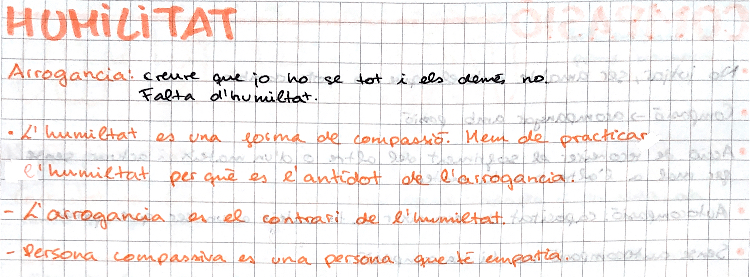 HUMILITAT
Arrogancia: creure que jo ho se tot i els demés no.
Falta d'humiltat.
• L'humiltat es una forma de compassió. Hem de practicar
l'humiltat per què es l'antídot de l'arrogancia.
- L'arrogancia es el contrari de l'humiltat.
- Persona compassiva es una persona que té empatia.